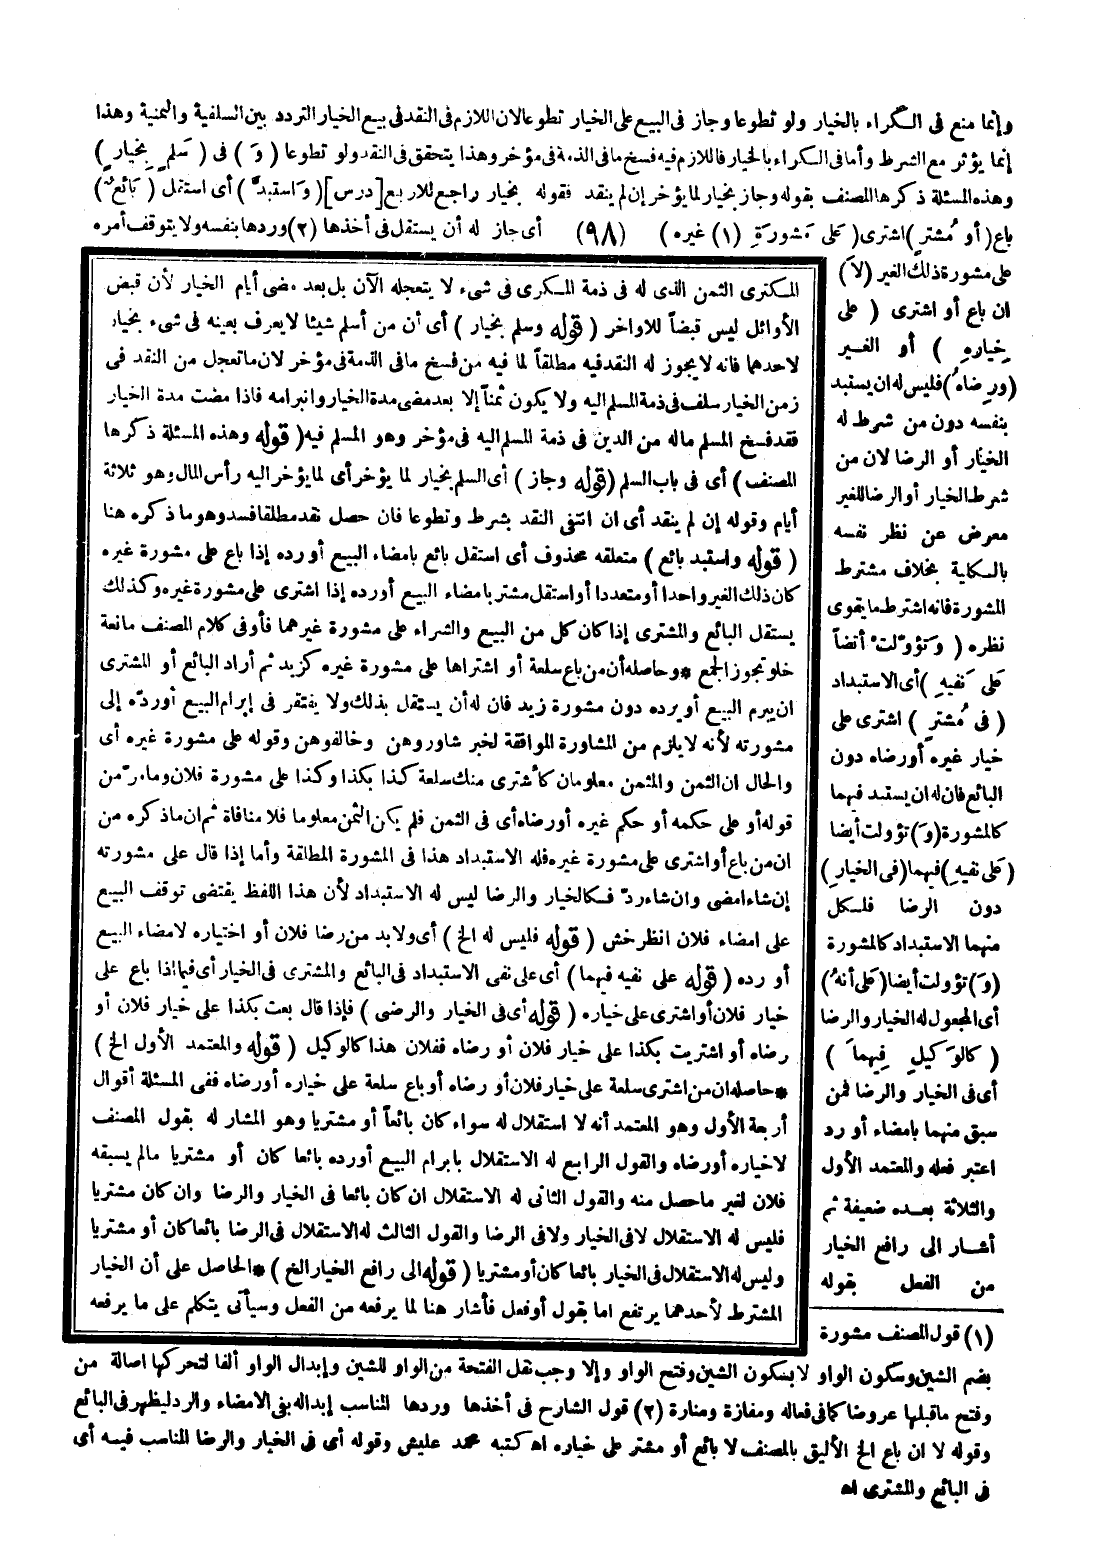 وإنما منع فى الكراء بالخيار ولو تطوعا وجاز فى البيع على الخيار تطوعا لان اللازم فى النقد فى بيع الخيار التردد بين السلفية والثمنية وهذا
إنما يؤثر مع الشرط وأما فى الكراء بالخيار فاللازم فيه فسخ ما فى الذمة فى مؤخر وهذا يتحقق فى النقد ولو تطوعا ( وَ ) فى ( سَلمٍ بِخيارٍ )
وهذه المسئلة ذكرها المصنف بقوله وجاز بخيار لما يؤخر إن لم ينقد فقوله بخيار راجع للاربع [درس] ( وَاستبدَّ ) أى استقل ( بَائعٌ )
باع ( أو مُشترٍ ) اشترى ( عَلى مَشورَةِ (١) غيره ) (٩٨) أى جاز له أن يستقل فى أخذها (٢) وردها بنفسه ولا يتوقف أمره
على مشورة ذلك الغير ( لاَ )
ان باع أو اشترى ( على
خِيارِهِ ) أو الغير
( ورِضاهُ ) فليس له ان يستبد
بنفسه دون من شرط له
الخيار أو الرضا لان من
شرط الخيار أو الرضا للغير
معرض عن نظر نفسه
بالكلية بخلاف مشترط
المشورة فانه اشترط ما يقوى
نظره ( وَتؤوّلتْ أيضاً
عَلى نَفيهِ ) أى الاستبداد
( فى مُشترٍ ) اشترى على
خيار غيره أو رضاه دون
البائع فان له ان يستبد فيهما
كالمشورة ( وَ ) تؤولت أيضا
( عَلى نفيهِ ) فيهما ( فى الخيارِ )
دون الرضا فلكل
منهما الاستبداد كالمشورة
( وَ ) تؤولت أيضا ( عَلى أنهُ )
أى المجعول له الخيار والرضا
( كالوَكيلِ فِيهمَا )
أى فى الخيار والرضا فمن
سبق منهما بامضاء أو رد
اعتبر فعله والمعتمد الأول
والثلاثة بعده ضعيفة ثم
أشار الى رافع الخيار
من الفعل بقوله
المكترى الثمن الذى له فى ذمة المكرى فى شىء لا يتعجله الآن بل بعد مضى أيام الخيار لأن قبض
الأوائل ليس قبضاً للاواخر ( قوله وسلم بخيار ) أى أن من أسلم شيئا لا يعرف بعينه فى شىء بخيار
لاحدهما فانه لا يجوز له النقد فيه مطلقاً لما فيه من فسخ ما فى الذمة فى مؤخر لان ما تعجل من النقد فى
زمن الخيار سلف فى ذمة المسلم اليه ولا يكون ثمناً إلا بعد مضى مدة الخيار وانبرامه فاذا مضت مدة الخيار
فقد فسخ المسلم ماله من الدين فى ذمة المسلم اليه فى مؤخر وهو المسلم فيه ( قوله وهذه المسئلة ذكرها
المصنف ) أى فى باب السلم ( قوله وجاز ) أى السلم بخيار لما يؤخر أى لما يؤخر اليه رأس المال وهو ثلاثة
أيام وقوله إن لم ينقد أى ان انتفى النقد بشرط وتطوعا فان حصل نقد مطلقا فسد وهو ما ذكره هنا
( قوله واستبد بائع ) متعلقه محذوف أى استقل بائع بامضاء البيع أو رده إذا باع على مشورة غيره
كان ذلك الغير واحدا أو متعددا أو استقل مشتر بامضاء البيع أو رده إذا اشترى على مشورة غيره وكذلك
يستقل البائع والمشترى إذا كان كل من البيع والشراء على مشورة غيرهما فأو فى كلام المصنف مانعة
خلو تجوز الجمع * وحاصله أن من باع سلعة أو اشتراها على مشورة غيره كزيد ثم أراد البائع أو المشترى
ان يبرم البيع أو يرده دون مشورة زيد فان له أن يستقل بذلك ولا يفتقر فى إبرام البيع أو ردّه إلى
مشورته لأنه لا يلزم من المشاورة الموافقة لخبر شاوروهن وخالفوهن وقوله على مشورة غيره أى
والحال ان الثمن والمثمن معلومان كأشترى منك سلعة كذا بكذا وكذا على مشورة فلان وما مرّ من
قوله أو على حكمه أو حكم غيره أو رضاه أى فى الثمن فلم يكن الثمن معلوما فلا منافاة ثم ان ما ذكره من
ان من باع أو اشترى على مشورة غيره فله الاستبداد هذا فى المشورة المطلقة وأما إذا قال على مشورته
إن شاء امضى وان شاء ردّ فكالخيار والرضا ليس له الاستبداد لأن هذا اللفظ يقتضى توقف البيع
على امضاء فلان انظر خش ( قوله فليس له الخ ) أى ولا بد من رضا فلان أو اختياره لامضاء البيع
أو رده ( قوله على نفيه فيهما ) أى على نفى الاستبداد فى البائع والمشترى فى الخيار أى فيما إذا باع على
خيار فلان أو اشترى على خياره ( قوله أى فى الخيار والرضى ) فإذا قال بعت بكذا على خيار فلان أو
رضاه أو اشتريت بكذا على خيار فلان أو رضاه ففلان هذا كالوكيل ( قوله والمعتمد الأول الخ )
* حاصله ان من اشترى سلعة على خيار فلان أو رضاه أو باع سلعة على خياره أو رضاه ففى المسئلة أقوال
أربعة الأول وهو المعتمد أنه لا استقلال له سواء كان بائعاً أو مشتريا وهو المشار له بقول المصنف
لا خياره أو رضاه والقول الرابع له الاستقلال بابرام البيع أو رده بائعا كان أو مشتريا مالم يسبقه
فلان لغير ما حصل منه والقول الثانى له الاستقلال ان كان بائعا فى الخيار والرضا وان كان مشتريا
فليس له الاستقلال لا فى الخيار ولا فى الرضا والقول الثالث له الاستقلال فى الرضا بائعا كان أو مشتريا
وليس له الاستقلال فى الخيار بائعا كان أو مشتريا ( قوله الى رافع الخيار الخ ) * الحاصل على أن الخيار
المشترط لأحدهما يرتفع اما بقول أو فعل فأشار هنا لما يرفعه من الفعل وسيأتى يتكلم على ما يرفعه
(١) قول المصنف مشورة
بضم الشين وسكون الواو لا بسكون الشين وفتح الواو وإلا وجب نقل الفتحة من الواو للشين وإبدال الواو ألفا لتحركها اصالة من
وفتح ماقبلها عروضا كما فى فعاله ومفازة ومنارة (٢) قول الشارح فى أخذها وردها المناسب إبداله بفى الامضاء والرد ليظهر فى البائع
وقوله لا ان باع الخ الأليق بالمصنف لا بائع أو مشتر على خياره اه كتبه محمد عليش وقوله أى فى الخيار والرضا المناسب فيه أى
فى البائع والمشترى اه